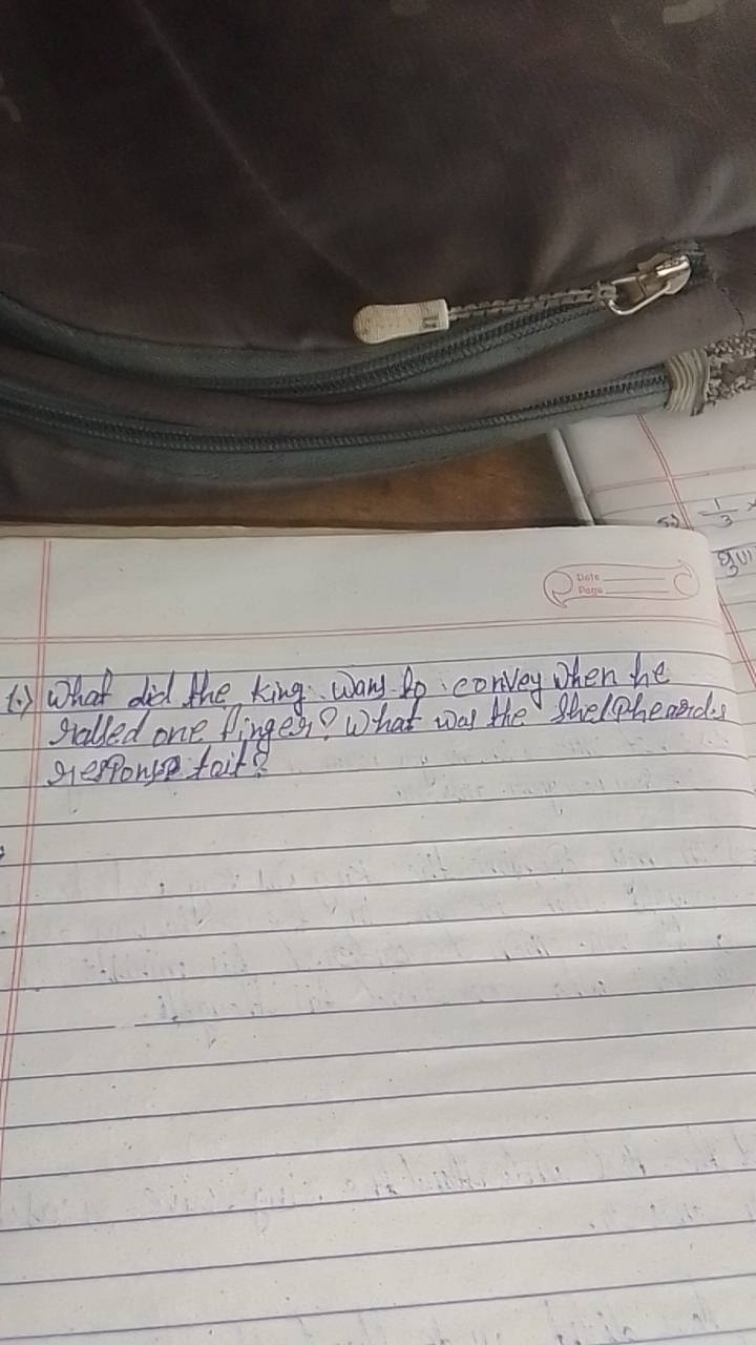 Date
Page
5)) 1/3 ×
গুণ
1.) What did the king wans to convey when he
raised one finger? What was the Shelpheards
response toit?